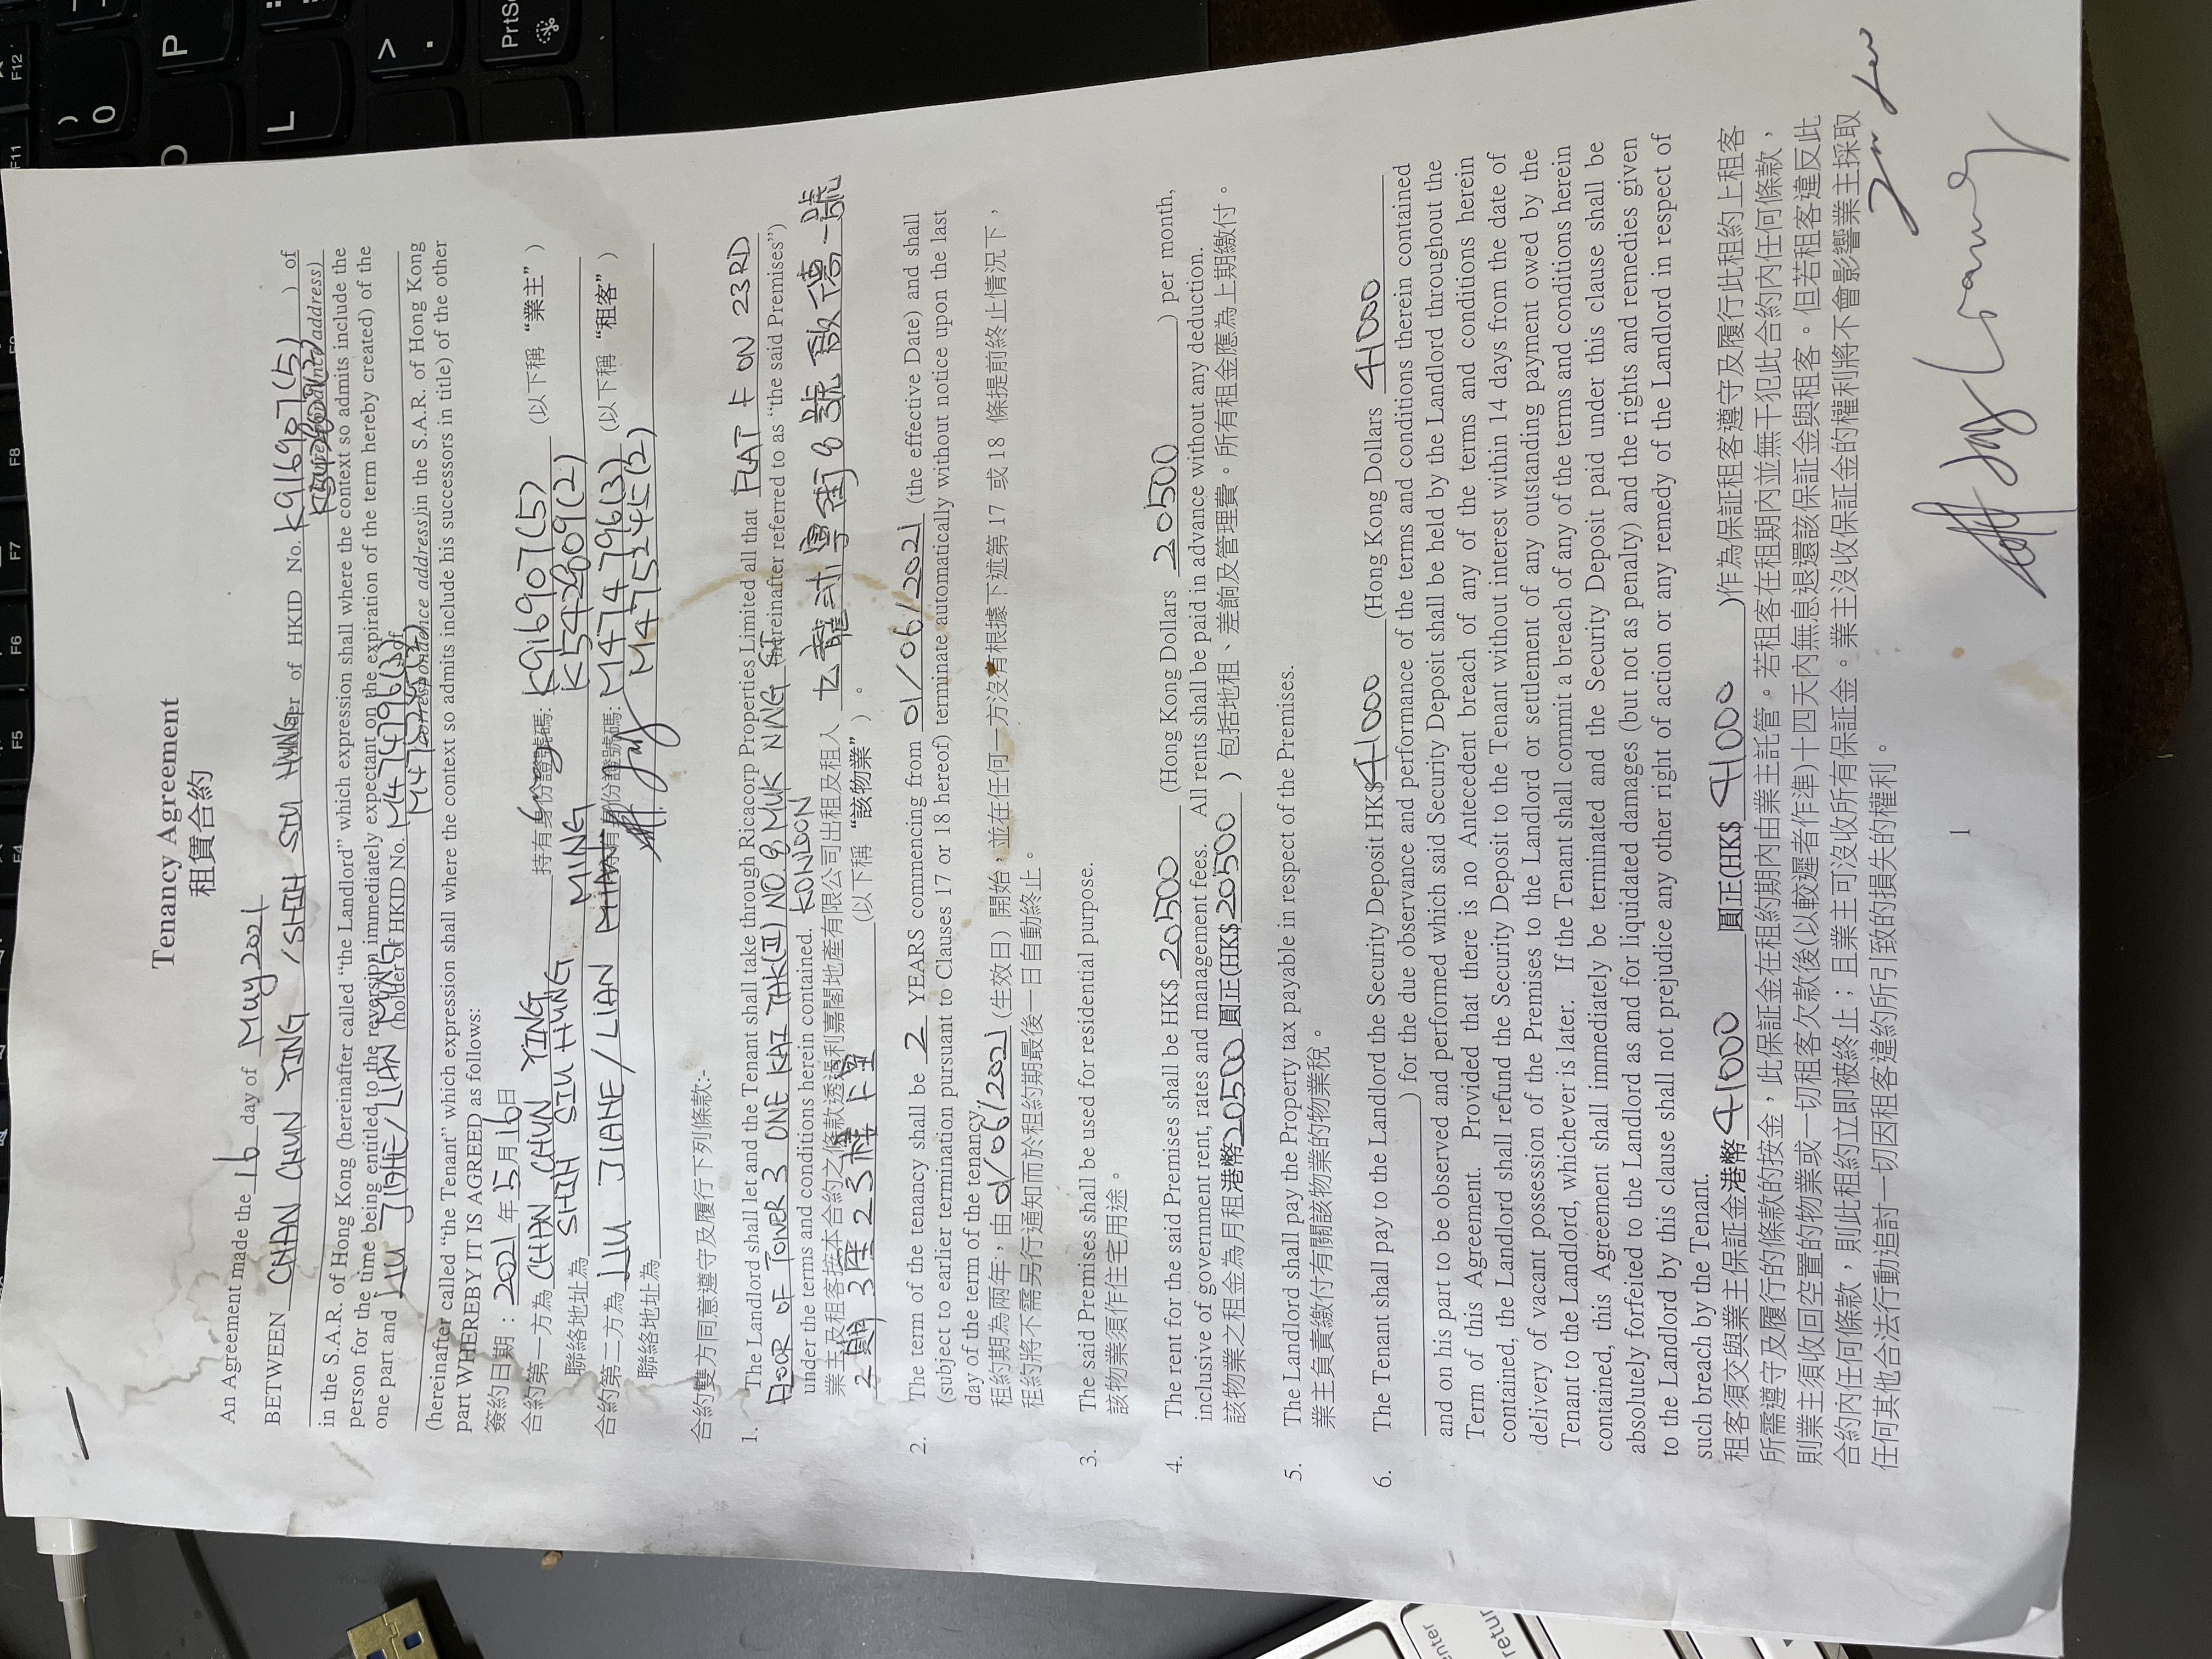 Tenancy Agreement
租賃合約
An Agreement made the 16 day of May 2021
BETWEEN CHAN CHUN YING / SHIH SIU HUNG of HKID No. K916907(5) ) of
in the S.A.R. of Hong Kong (hereinafter called “the Landlord” which expression shall where the context so admits include the
person for the time being entitled to the reversion immediately expectant on the expiration of the term hereby created) of the
one part and LIU JIAHE/LIAN MING (holder of HKID No. M474796(3) of
(correspondence address) in the S.A.R. of Hong Kong
(hereinafter called “the Tenant” which expression shall where the context so admits include his successors in title) of the other
part WHEREBY IT IS AGREED as follows:
簽約日期：2021 年 5 月 16 日
合約第一方為 CHAN CHUN YING 持有身份證號碼: K916907(5) (以下稱 “業主” )
SHIH SIU HUNG K542609(2)
聯絡地址為
合約第二方為 LIU JIAHE / LIAN MING 持有身份證號碼: M474796(3) (以下稱 “租客” )
M47524E(2)
聯絡地址為
合約雙方同意遵守及履行下列條款:-
1. The Landlord shall let and the Tenant shall take through Ricacorp Properties Limited all that FLAT F ON 23RD
FLOOR OF TOWER 3 ONE KAI TAK(II) NO.8 MUK NING ST (hereinafter referred to as “the said Premises”)
under the terms and conditions herein contained. KOWLOON
業主及租客按本合約之條款透過利嘉閣地產有限公司出租及租入 九龍沐寧街8號啟德一號
2期3座23樓F室 (以下稱 “該物業” ) 。
2. The term of the tenancy shall be 2 YEARS commencing from 01/06/2021 (the effective Date) and shall
(subject to earlier termination pursuant to Clauses 17 or 18 hereof) terminate automatically without notice upon the last
day of the term of the tenancy.
租約期為兩年，由 01/06/2021 (生效日) 開始，並在任何一方沒有根據下述第 17 或 18 條提前終止情況下，
租約將不需另行通知而於租約期最後一日自動終止。
3. The said Premises shall be used for residential purpose.
該物業須作住宅用途。
4. The rent for the said Premises shall be HK$ 20500 (Hong Kong Dollars 20500 ) per month,
inclusive of government rent, rates and management fees. All rents shall be paid in advance without any deduction.
該物業之租金為月租港幣20500 圓正(HK$ 20500 ) 包括地租、差餉及管理費。所有租金應為上期繳付。
5. The Landlord shall pay the Property tax payable in respect of the Premises.
業主負責繳付有關該物業的物業稅。
6. The Tenant shall pay to the Landlord the Security Deposit HK$41000 (Hong Kong Dollars 41000
) for the due observance and performance of the terms and conditions therein contained
and on his part to be observed and performed which said Security Deposit shall be held by the Landlord throughout the
Term of this Agreement. Provided that there is no Antecedent breach of any of the terms and conditions herein
contained, the Landlord shall refund the Security Deposit to the Tenant without interest within 14 days from the date of
delivery of vacant possession of the Premises to the Landlord or settlement of any outstanding payment owed by the
Tenant to the Landlord, whichever is later. If the Tenant shall commit a breach of any of the terms and conditions herein
contained, this Agreement shall immediately be terminated and the Security Deposit paid under this clause shall be
absolutely forfeited to the Landlord as and for liquidated damages (but not as penalty) and the rights and remedies given
to the Landlord by this clause shall not prejudice any other right of action or any remedy of the Landlord in respect of
such breach by the Tenant.
租客須交與業主保証金港幣41000 圓正(HK$ 41000 )作為保証租客遵守及履行此租約上租客
所需遵守及履行的條款的按金，此保証金在租約期內由業主託管。若租客在租期內並無干犯此合約內任何條款，
則業主須收回空置的物業或一切租客欠款後(以較遲者作準)十四天內無息退還該保証金與租客。但若租客違反此
合約內任何條款，則此租約立即被終止；且業主可沒收所有保証金。業主沒收保証金的權利將不會影響業主採取
任何其他合法行動追討一切因租客違約所引致的損失的權利。
1
) 0
P
L
> .
PrtSc
F4
F5
F6
F7
F8
F11
F12
enter
return